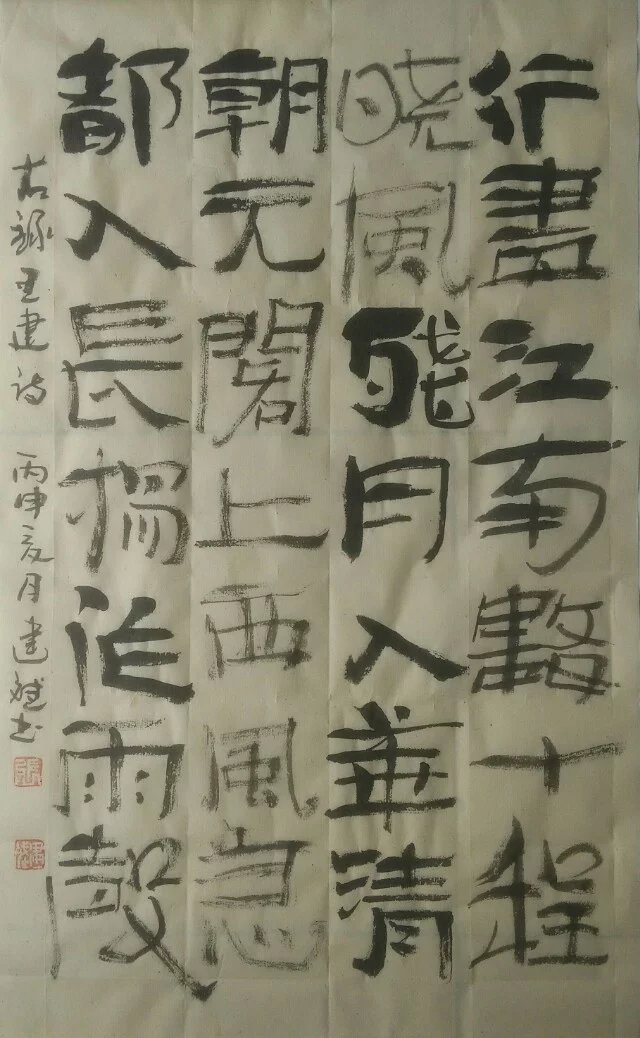 行盡江南數十程
曉風殘月入華清
朝元閣上西風急
都入長楊作雨聲
右錄王建詩 丙申亥月建斌书